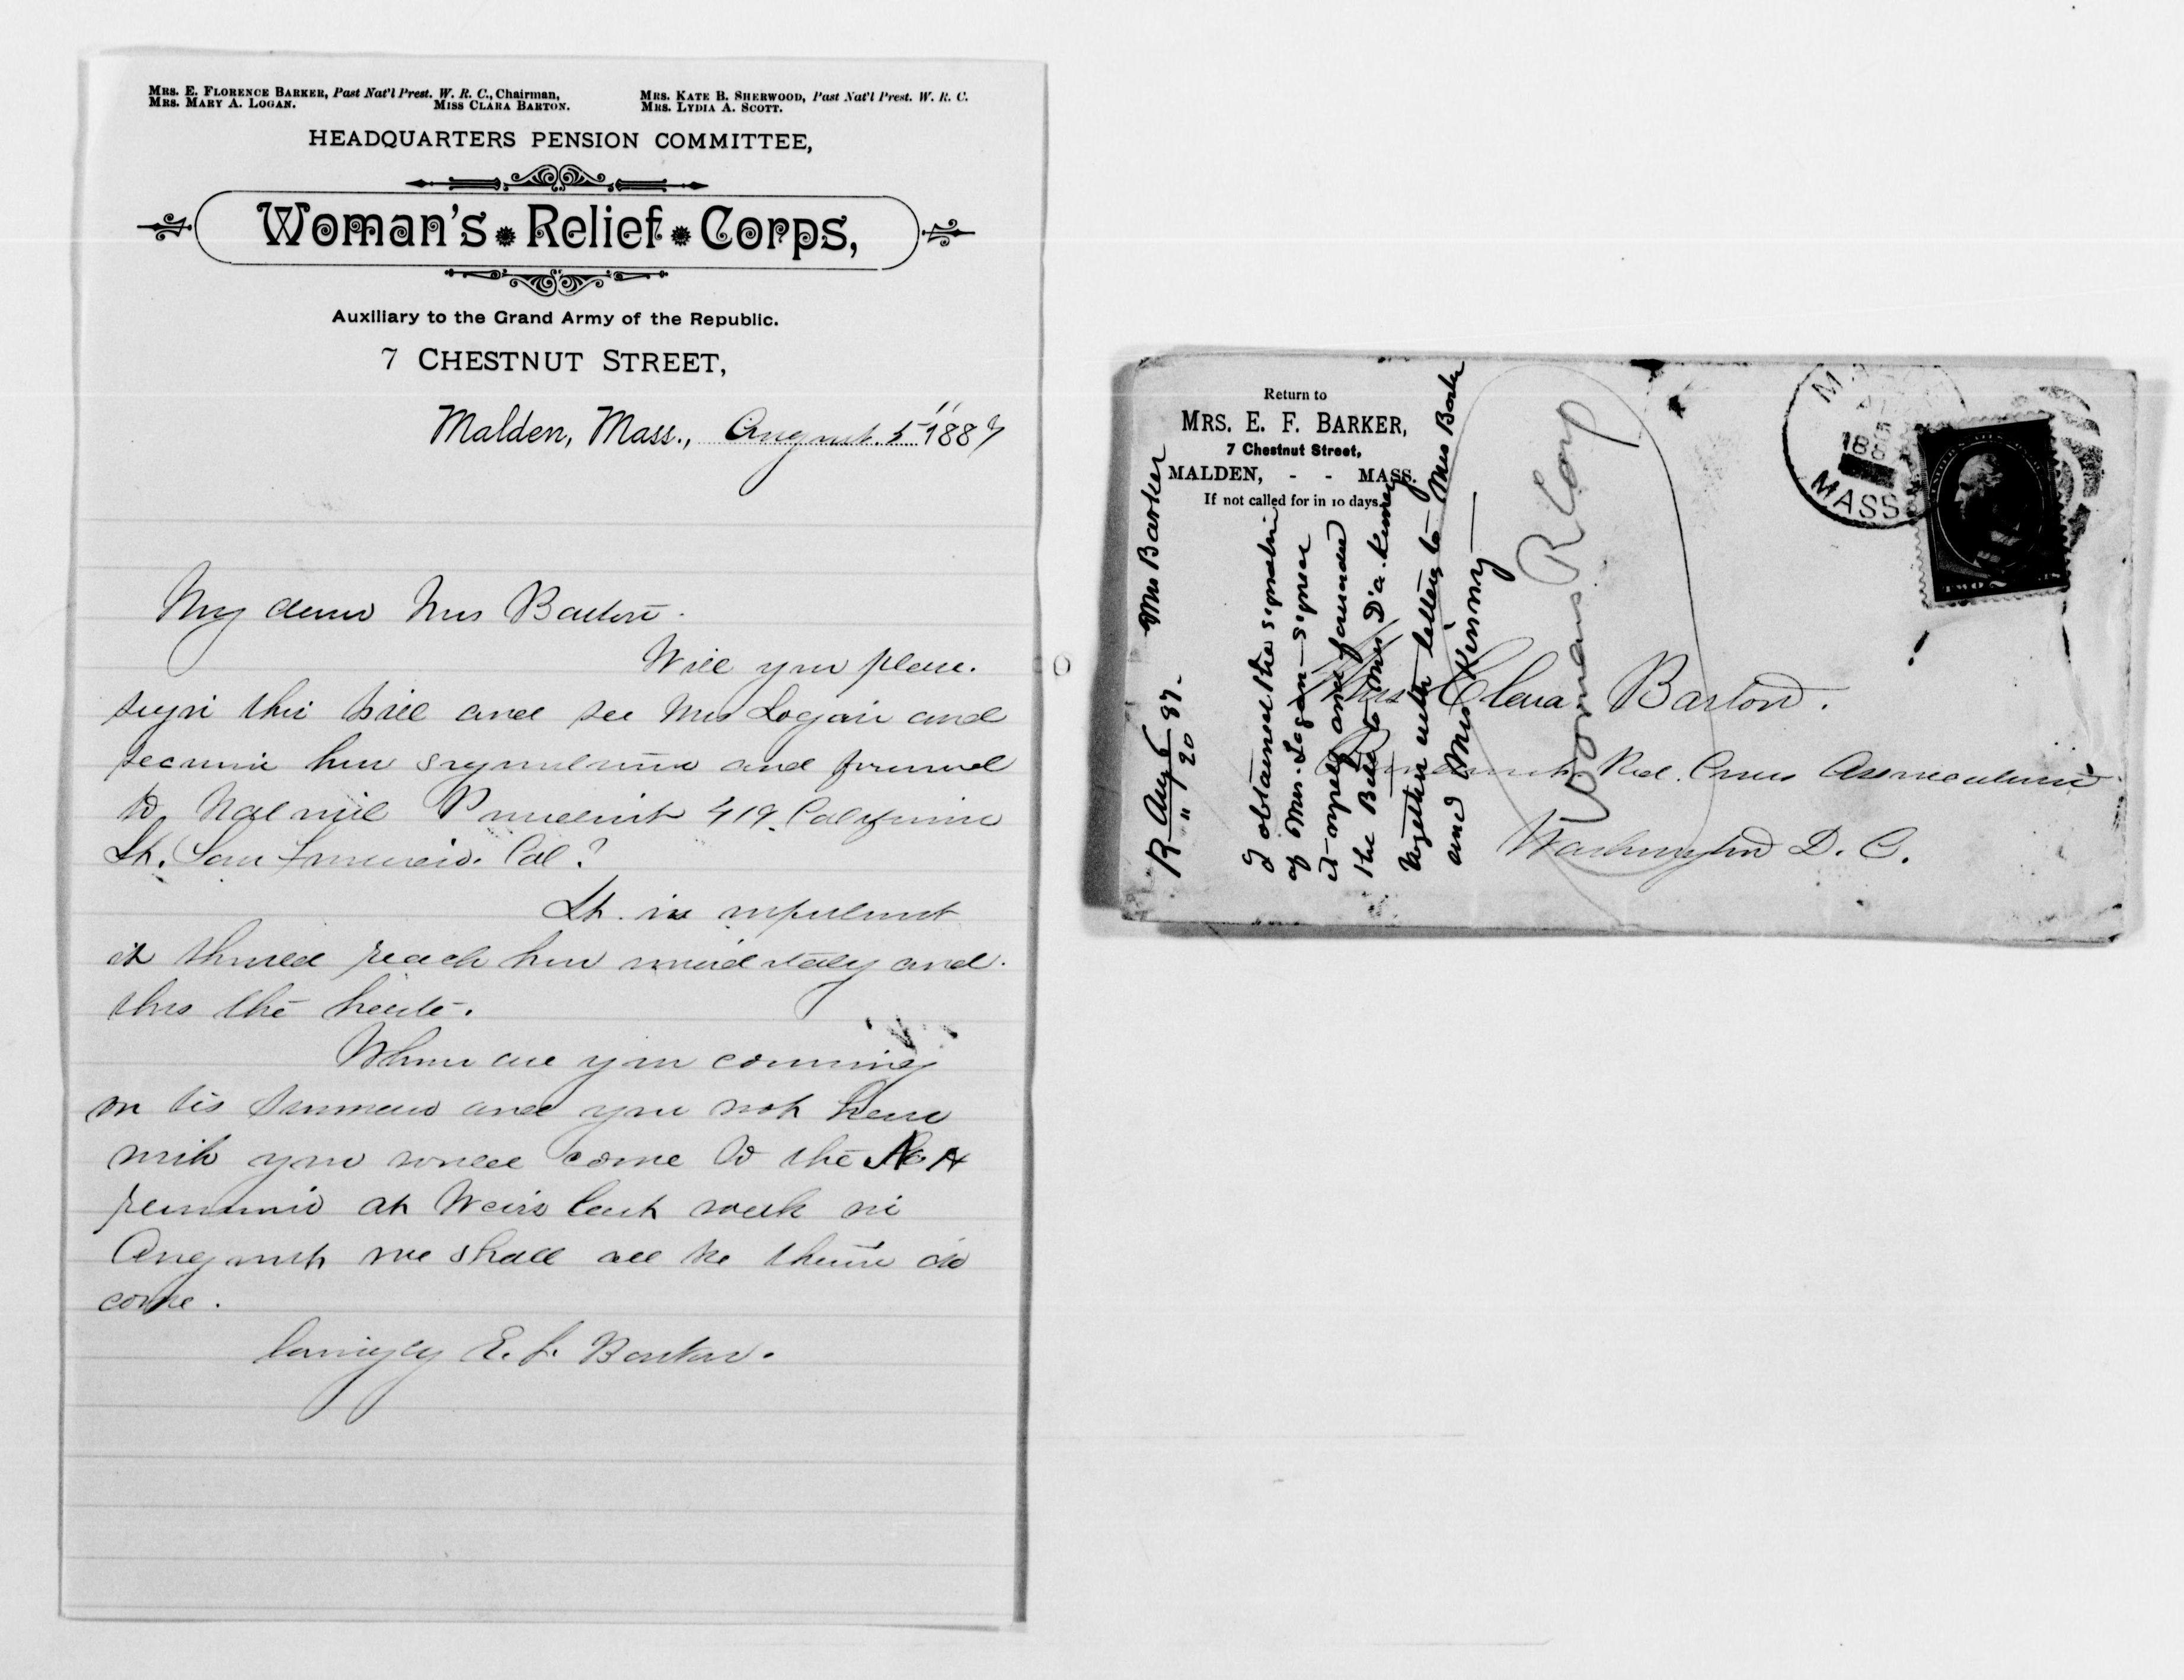 MRS. E. FLORENCE BARKER, Past Nat'l Prest. W. R. C., Chairman,
MRS. MARY A. LOGAN. MISS CLARA BARTON.
MRS. KATE B. SHERWOOD, Past Nat'l Prest. W. R. C.
MRS. LYDIA A. SCOTT.
HEADQUARTERS PENSION COMMITTEE,
Woman's Relief Corps,
Auxiliary to the Grand Army of the Republic.
7 CHESTNUT STREET,
Malden, Mass., August 5" 1887
My dear Miss Barton.
Will you please.
sign this bill and see Mrs Logan and
secure her signature and forward
to National President 419. California
St. San Francisco. Cal?
It is important
it should reach her immediately and
this the haste.
When are you coming
on this summer and you not here
wish you would come to the N H
reunion at Weirs last week in
August we shall all be there do
come.
Lovingly E. F. Barker.
Return to
MRS. E. F. BARKER,
7 Chestnut Street,
MALDEN, - - MASS.
If not called for in 10 days.
MASS
188
Miss Clara Barton.
President Red Cross Association
Washington D. C.
Womans R Corp
Mrs Barker
R Aug 6 87-
" 20
I obtained the signature
of Mrs. Logan - signed
it myself and forwarded
the Bill to Mrs D'a. Kinney
together with letters to Mrs Barker
and Mrs Kinney